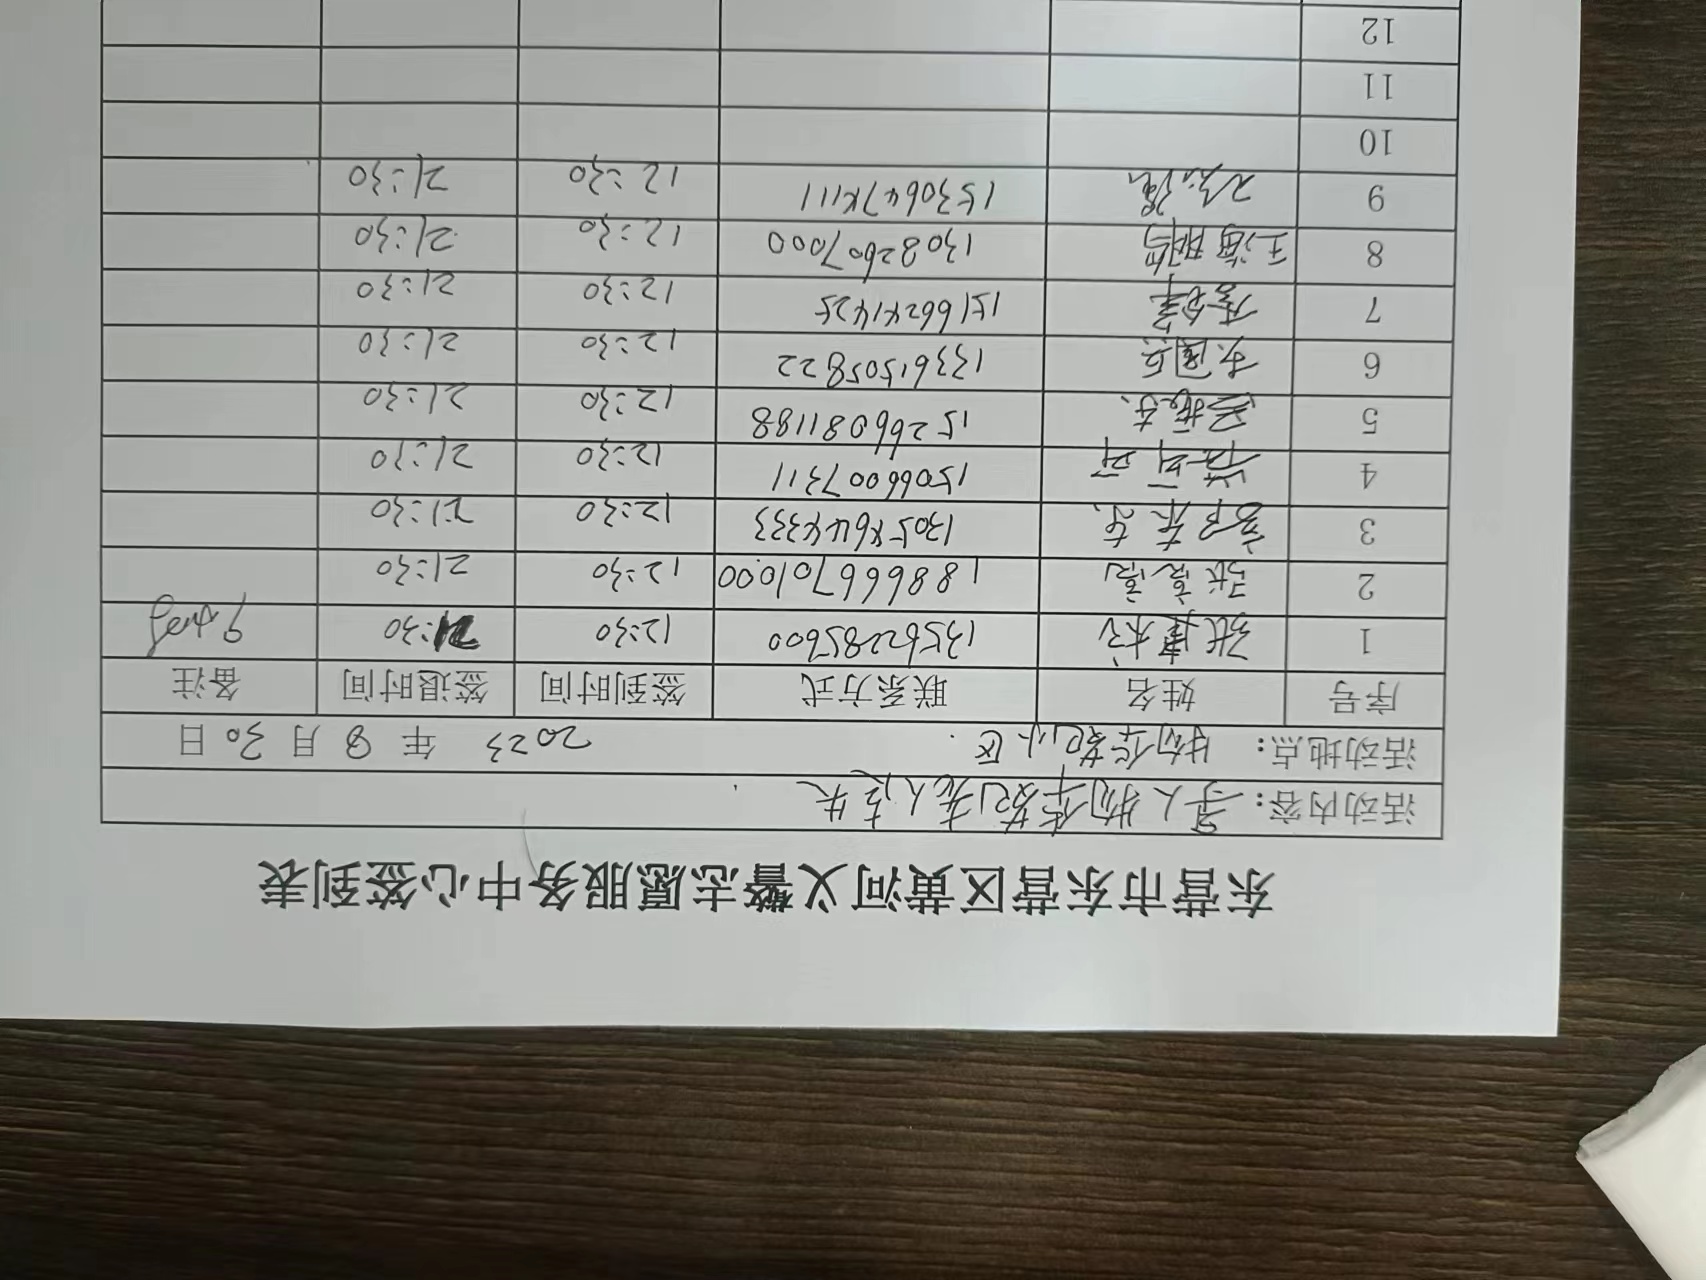 东营市东营区黄河义警志愿服务中心签到表
活动内容: 寻人物华苑老人走失
活动地点: 物华苑小区. 2023 年 8 月 30 日
序号 姓名 联系方式 签到时间 签退时间 备注
1 张建水 13562285600 12:30 21:30
2 张亮亮 188666701000 12:30 21:30
3 13058644333 12:30 21:30
4 15066007311 12:30 21:30
5 15266081188 12:30 21:30
6 13361505822 12:30 21:30
7 15166241425 12:30 21:30
8 王海鹏 13082607000 12:30 21:30
9 12:30 21:30
10
11
12